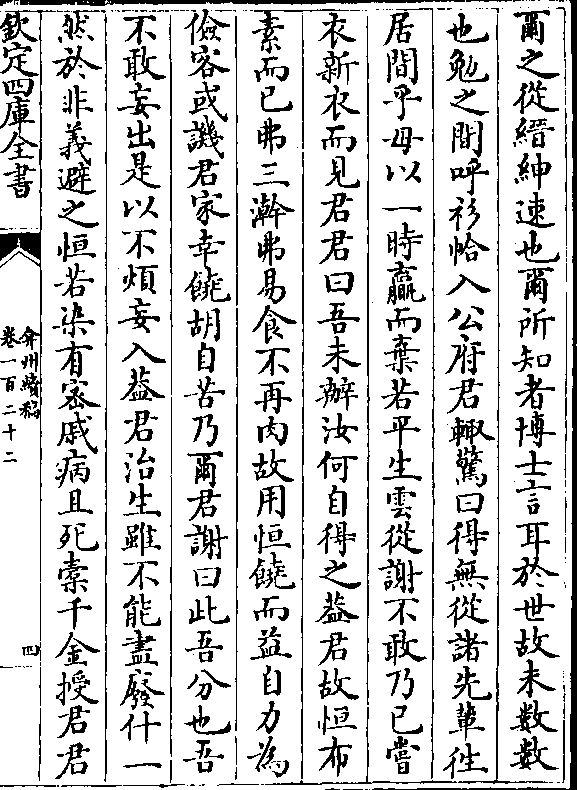 爾之從縉紳速也爾所知者博士言耳於世故未數數
也勉之間呼衫帢入公府君輙驚曰得無從諸先輩徃
居間乎毋以一時贏而棄若平生雲從謝不敢乃已嘗
衣新衣而見君君曰吾未辦汝何自得之葢君故恒布
素而已弗三澣弗易食不再肉故用恒饒而益自力為
儉客或譏君家幸饒胡自苦乃爾君謝曰此吾分也吾
不敢妄出是以不煩妄入葢君治生雖不能盡廢什一
然於非義避之恒若染有宻戚病且死槖千金授君君
欽定四庫全書
弇州續稿
卷一百二十二
四